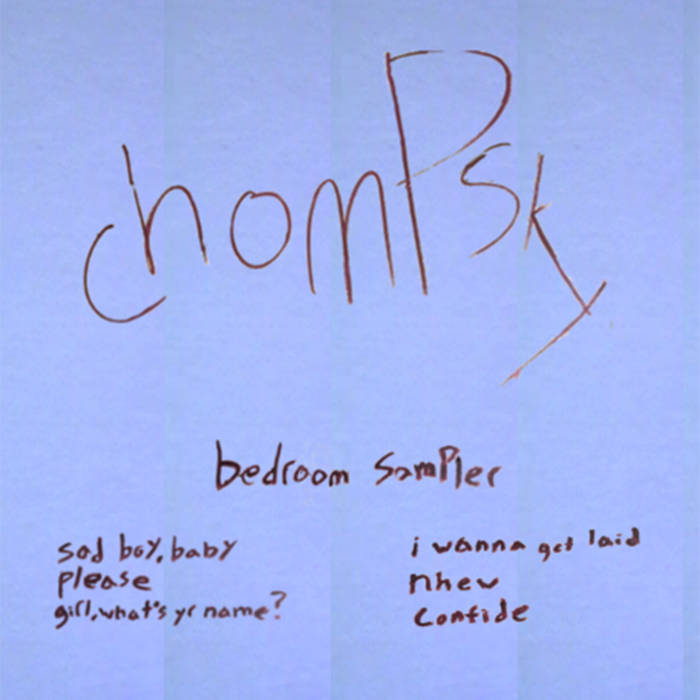 chomPsky
bedroom samPler
sad boy, baby
please
girl, what's yr name?
i wanna get laid
nhew
confide